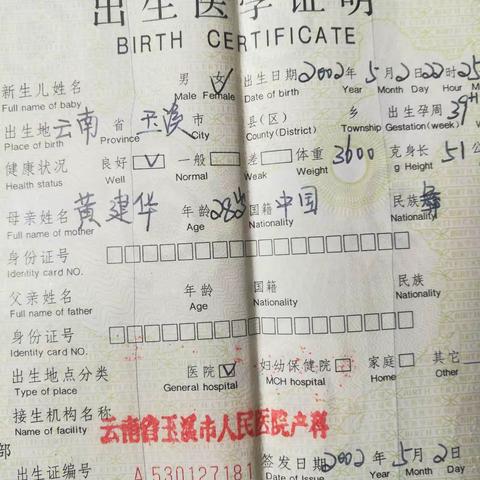 出生医学证明
BIRTH CERTIFICATE
新生儿姓名 男 女 ✓ 出生日期 2002 年 5 月 2 日 22 时 25
Full name of baby Male Female Date of birth Year Month Day Hour M
出生地 云南 省 玉溪 市 县(区) 乡 出生孕周 39
Place of birth Province City County(District) Township Gestation(week) W
健康状况 良好 ✓ 一般 差 体重 3600 克 身长 51 公
Health status Well Normal Weak Weight g Height
母亲姓名 黄建华 年龄 28岁 国籍 中国 民族
Full name of mother Age Nationality Nationality
身份证号
Identity card NO.
父亲姓名 年龄 国籍 民族
Full name of father Age Nationality Nationality
身份证号
Identity card NO.
出生地点分类 医院 ✓ 妇幼保健院 家庭 其它
Type of place General hospital MCH hospital Home Other
接生机构名称
Name of facility 云南省玉溪市人民医院产科
部
出生证编号 A530127181 签发日期 2002 年 5 月 2 日
Date of Issue Year Month Day